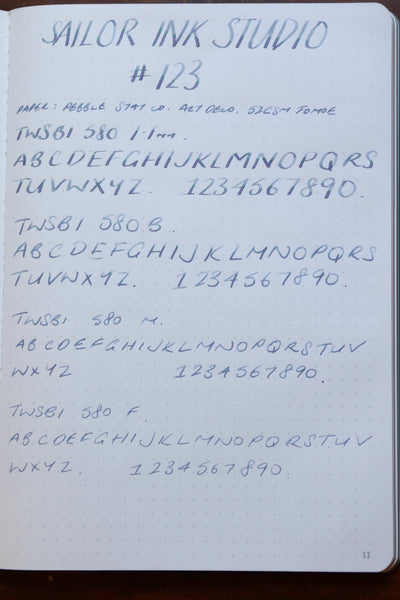 SAILOR INK STUDIO
#123
PAPER: PEBBLE STAT CO. 52GSM TOMOE
TWSBI 580 1.1mm.
ABCDEFGHIJKLMNOPQRS
TUVWXYZ. 1234567890.
TWSBI 580 B.
ABCDEFGHIJKLMNOPQRS
TUVWXYZ. 1234567890.
TWSBI 580 M.
ABCDEFGHIJKLMNOPQRSTUV
WXYZ 1234567890.
TWSBI 580 F.
ABCDEFGHIJKLMNOPQRSTUV
WXYZ. 1234567890.
11